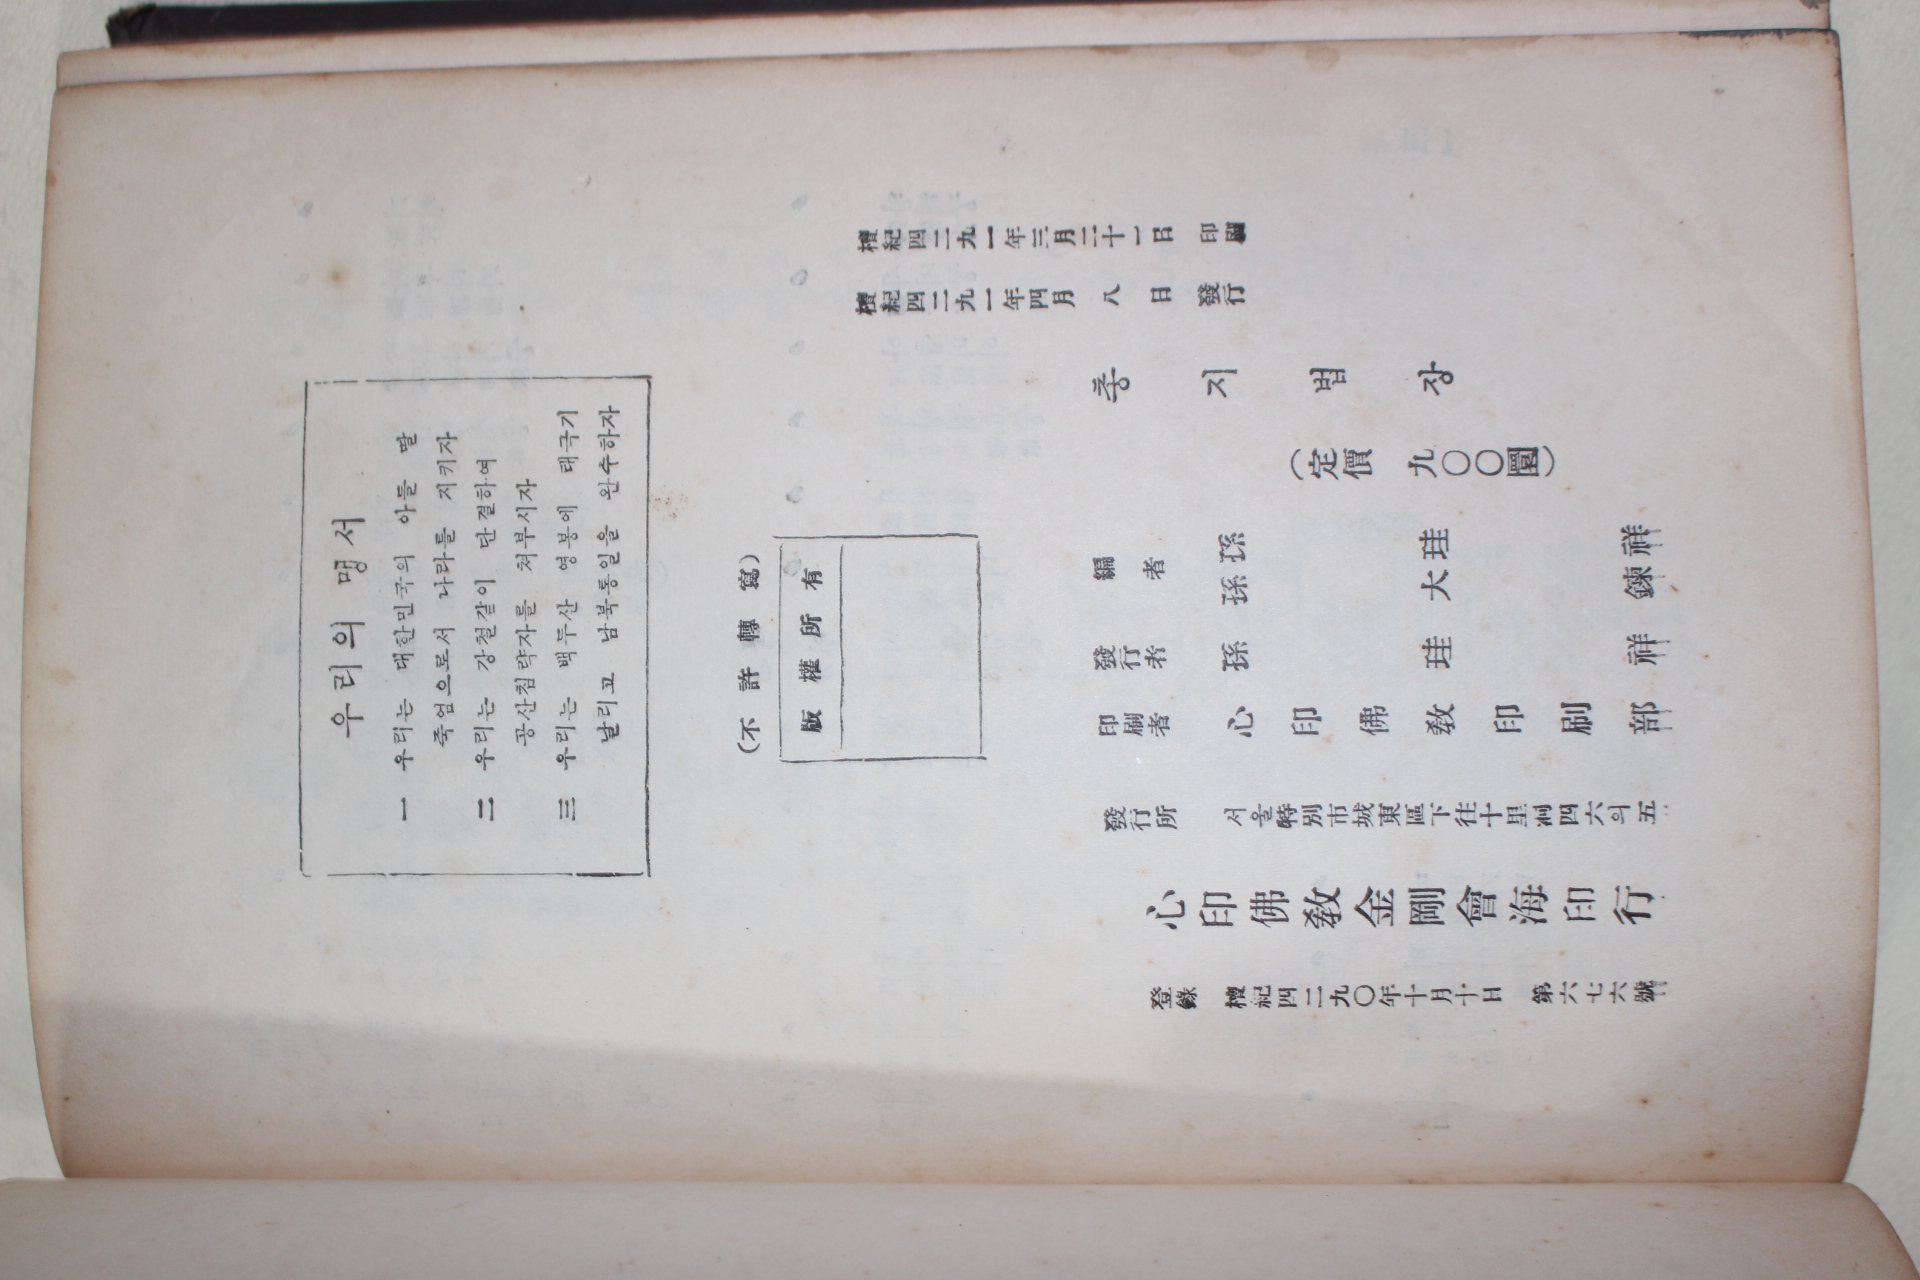 우리의 맹서
一 우리는 대한민국의 아들 딸
죽엄으로서 나라를 지키자
二 우리는 강철같이 단결하여
공산침략자를 처부시자
三 우리는 백두산 영봉에 태극기
날리고 남북통일을 완수하자
(不許轉寫)
版權所有
檀紀四二九一年三月二十一日 印刷
檀紀四二九一年四月八日 發行
총지법장
(定價 九〇〇圜)
編者 孫大鍊
孫珪祥
發行者 孫珪祥
印刷者 心印佛敎印刷部
發行所 서울特別市城東區下往十里洞四六의五
心印佛敎金剛會海印行
登錄 檀紀四二九〇年十月十日 第六七六號